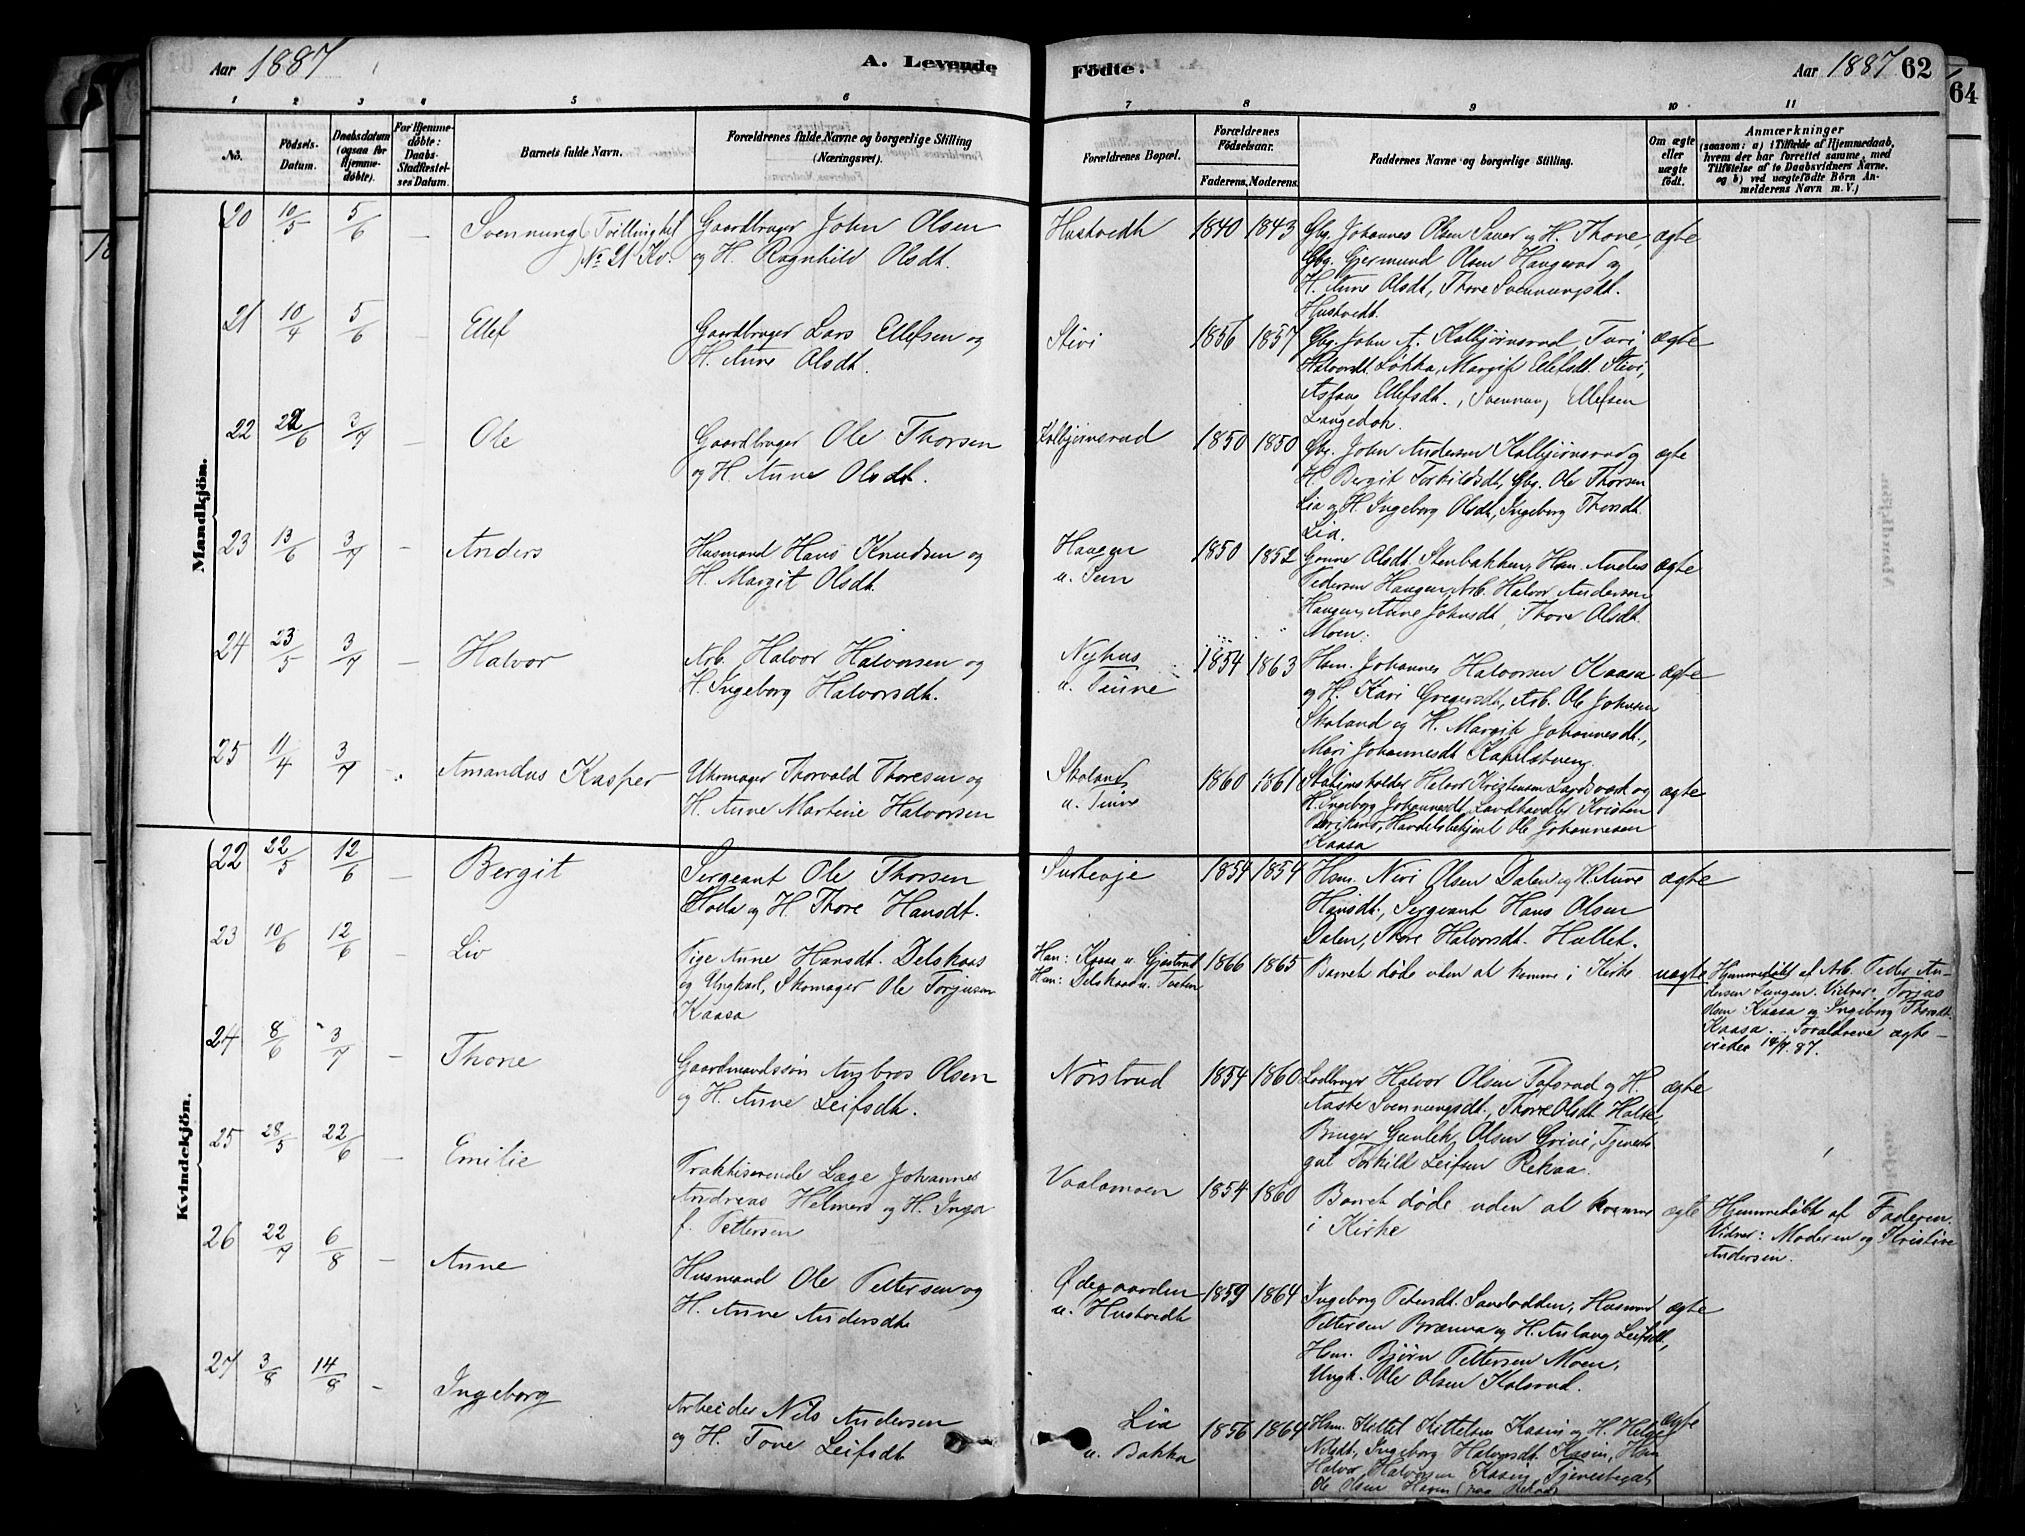 Aar 1887
A. Levende
Fødte.
Aar 1887
62
64
1 2 3 4 5 6 7 8 9 10 11
No.
Födsels-
Datum.
Daabsdatum
(ogsaa for
Hjemme-
döbte).
For Hjemme-
döbte:
Daabs-
Stadfæstel-
ses Datum.
Barnets fulde Navn.
Forældrenes fulde Navne og borgerlige Stilling
(Næringsvei).
Forældrenes Bopæl.
Forældrenes
Födselsaar.
Faderens. Moderens.
Faddernes Navne og borgerlige Stilling.
Om ægte
eller
uægte
födt.
Anmærkninger
(saasom: a) i Tilfælde af Hjemmedaab,
hvem der har forrettet samme, med
Tilföielse af to Daabsvidners Navne.
og b) ved uægtefödte Börn An-
melderens Navn m. V.)
Mandkjön.
20 10/5 5/6 — Svennung (Tvilling til
No 21 Kv.
Gaardbruger John Olsen
og H. Ragnhild Olsdt.
Hustvedt 1840 1843
Gbg. Johannes Olsen Sauer og H. Thone,
Gbg. Gjermund Olsen Haugerud og
H. Anne Olsdt, Thore Svennungsdt.
Hustvedt.
ægte
21 10/4 5/6 — Ellef
Gaardbruger Lars Ellefsen og
H. Anne Olsdt.
Stivi 1856 1857
Gbg. John A. Kolbjørnsrud, Turi
Halvorsdt. Løkka, Margit Ellefsdt. Stivi,
Ellefsdt., Svennung Ellefsen
Langedok.
ægte
22 22/6 3/7 — Ole
Gaardbruger Ole Thorsen
og H. Anne Olsdt.
Kolbjørnsrud 1850 1850
Gbg. John Andersen Kolbjørnsrud og
H. Bergit Torkildsdt, Gbg. Ole Thorsen
Lia og H. Ingeborg Olsdt, Ingeborg Thorsdt.
Lia.
ægte
23 13/6 3/7 — Anders
Husmand Hans Knudsen og
H. Margit Olsdt.
Haugen
u. Sem
1850 1852
Gonne Olsdt. Stenbakken, Hsm. Anders
Pedersen Haugen, Arb. Halvor Andersen
Haugen, Anne Johnsdt, Thore Olsdt.
Moen.
ægte
24 23/5 3/7 — Halvor
Arb. Halvor Halvorsen og
H. Ingeborg Halvorsdt.
Nyhus
u. Tinne
1854 1863
Hsm. Johannes Halvorsen Kaasa
og H. Kari Gregersdt, Arb. Ole Johnsen
Skoland og H. Margit Johannesdt.,
Mari Johannesdt Kapelstveng.
ægte
25 11/4 3/7 Amandus Kasper
Uhrmager Thorvald Thoresen og
H. Anne Martine Halvorsen
Skoland
u. Tinne
1860 1861
Stationsholder Halvor Kristensen og
H. Ingeborg Johannesdt, Landhandler Kristen
Handelsbetjent Ole Johannesen
Kaasa
ægte
Kvindekjön.
22 22/5 12/6 Bergit
Sergeant Ole Thorsen
Holla og H. Thore Hansdt.
1854 1854
Hsm. Niri Olsen Dalen og H. Anne
Hansdt., Sergeant Hans Olsen
Dalen, Thore Halvorsdt. Hullet.
ægte
23 10/6 12/6 Liv
Pige Anne Hansdt. Delskaas
og Ungkarl, Skomager Ole Torjusen
Kaasa
Han: Kaasa u.
Hun: Delskaas u.
1866 1865
Barnet døde uden at komme i Kirke
uægte
Hjemmedøbt af Arb. Peder An-
dersen Langen. Vidner: Torjus
Olsen Kaasa og Ingeborg Thorsdt.
Kaasa. Forældrene ægte-
viedes 14/9. 87.
24 8/6 3/7 — Thone
Gaardmandssøn Ambros Olsen
og H. Anne Leifsdt.
Nørstrud 1854 1860
Halvor Olsen Tofsrud og H.
Aaste Svennungsdt., Thore Olsdt. Holte,
Bruger Gunlek Olsen Grivi, Tjeneste-
gut Torkild Leifsen Rekaa.
ægte
25 28/5 22/6 — Emilie
Praktiserende Læge Johannes
Andreas Helmers og H. Inga
f. Pettersen
Vaalamoen 1854 1860
Barnet døde uden at komme
i Kirke
ægte
Hjemmedøbt af Faderen.
Vidner: Moderen og Kristine
Andersen.
26 22/7 6/8 — Anne
Husmand Ole Pettersen og
H. Anne Andersdt.
Ødegaarden
u. Hustvedt
1859 1864
Ingeborg Petersdt. Husmd
Pettersen Brænna og H. Aslaug Leifsdt,
Hsm. Bjørn Pettersen Moen,
Ungk. Ole Olsen Kolsrud.
ægte
27 3/8 14/8 — Ingeborg
Arbeider Nils Andersen
og H. Tone Leifsdt
Lia
u. Bakka
1856 1864
Hsm. Kittel Kittelsen Kasin og H. Helge
Nilsdt, Ingeborg Halvorsdt. Kasin, Hsm.
Halvor Halvorsen Kasin, Tjenestegut
Ole Olsen
ægte